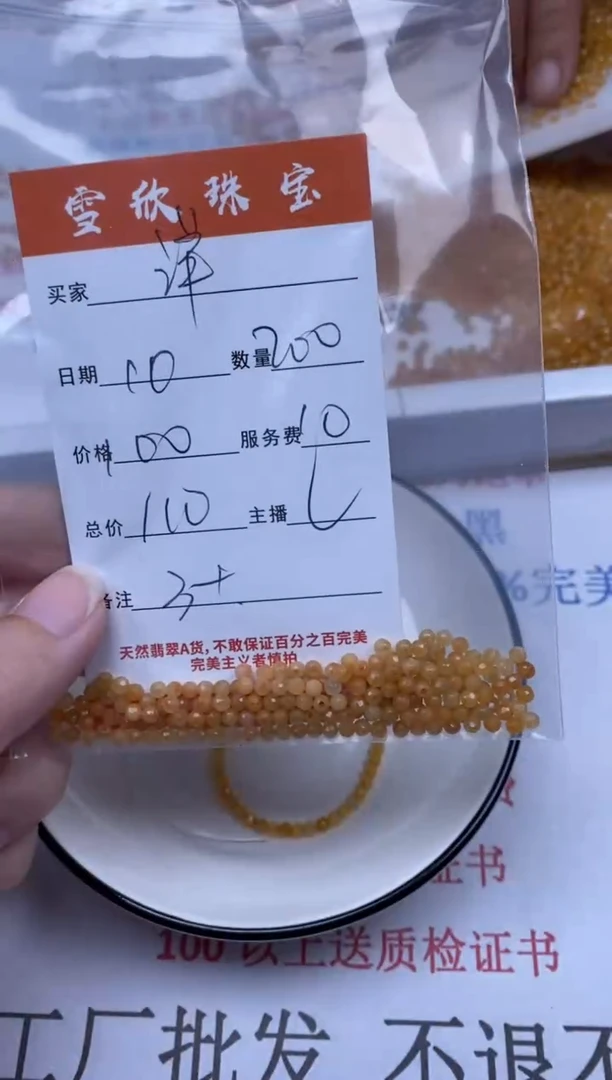 雪欣珠宝
买家 洋
日期 10 数量 200
价格 100 服务费 10
总价 110 主播 L
备注 3+
天然翡翠A货,不敢保证百分之百完美
完美主义者慎拍
黑
%完美
证书
100以上送质检证书
工厂批发 不退不